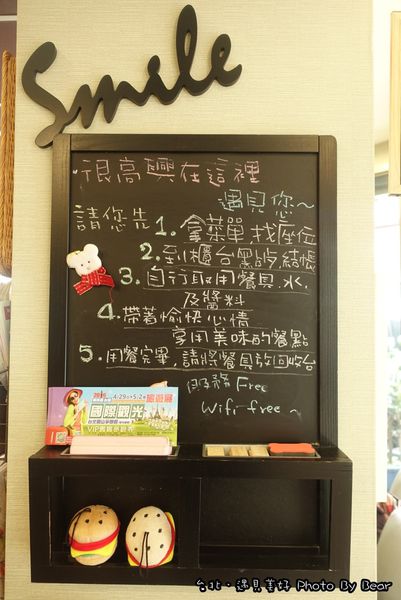 Smile
很高興在這裡
遇見您～
請您先 1. 拿菜單,找座位
2. 到櫃台點炒,結帳
3. 自行取用餐具.水.
及醬料
4. 帶著愉快心情
享用美味的餐點
5. 用餐完畢,請將餐具放回收台
服務 Free
Wifi-free～
4/29 5/2
旅遊展
國際觀光
台北．遇見美好 Photo By Bear